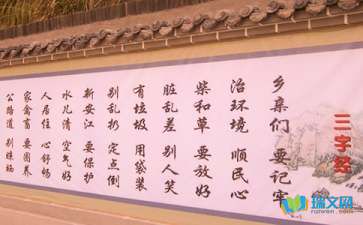 三字经
乡亲们 要记牢
治环境 顺民心
柴和草 要放好
脏乱差 别人笑
有垃圾 用袋装
别乱扔 定点倒
新安江 要保护
水儿清 空气好
人居住 心舒畅
家禽畜 要圈养
公路道 别晾晒
瑞文网
ruiwen.com